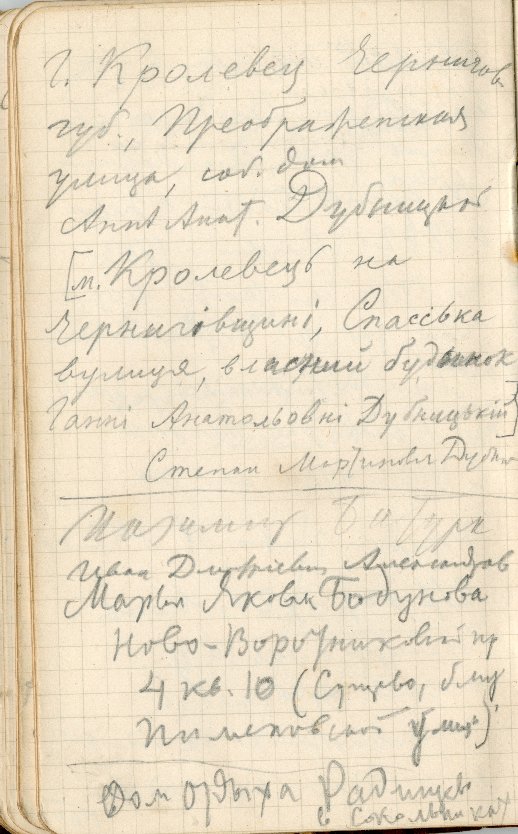 г. Кролевец Чернигов.
губ., Преображенская
улица, соб. дом
Аннѣ Анат. Дубницкой
[м. Кролевець на
Чернигівщині, Спасська
вулиця, власний будинок
Ганні Анатольовні Дубницькій]
Степан Мартинович Дубни

Иван Дмитриевич Александров
Марья Яковл Бодунова
Ново-Воротниковский пр
4 кв. 10 (Сущево, близ
Пименовской улицы)
Дом отдыха Радищев
в Сокольниках